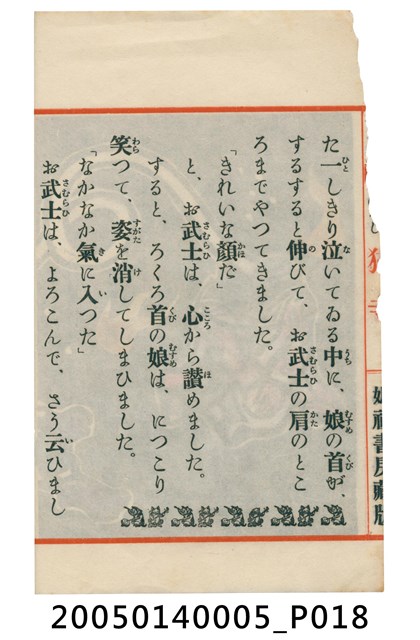 た一しきり泣いてゐる中に、娘の首が、
するすると伸びて、お武士の肩のとこ
ろまでやつてきました。
「きれいな顔だ」
と、お武士は、心から讃めました。
すると、ろくろ首の娘は、につこり
笑つて、姿を消してしまひました。
「なかなか氣に入つた」
お武士は、よろこんで、さう云ひまし
書房藏版
20050140005_P018